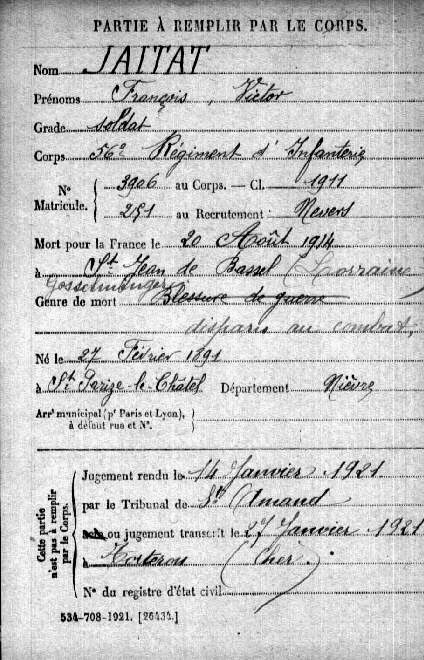 PARTIE À REMPLIR PAR LE CORPS.
Nom JAITAT
Prénoms François, Victor
Grade soldat
Corps 56e Régiment d'Infanterie
N° Matricule. { 3906 au Corps. — Cl. 1911
251 au Recrutement Nevers
Mort pour la France le 20 Août 1914
à St Jean de Bassel (Lorraine)
Gosselminger
Genre de mort Blessure de guerre
disparu au combat,
Né le 27 Février 1891
à St Parize-le-Châtel Département Nièvre
Arrt municipal (pr Paris et Lyon), à défaut rue et N°. }
Cette partie n'est pas à remplir par le Corps.
Jugement rendu le 14 Janvier 1921
par le Tribunal de St Amand
acte ou jugement transcrit le 27 Janvier 1921
à (Cher)
N° du registre d'état civil
534-708-1921. [26434.]